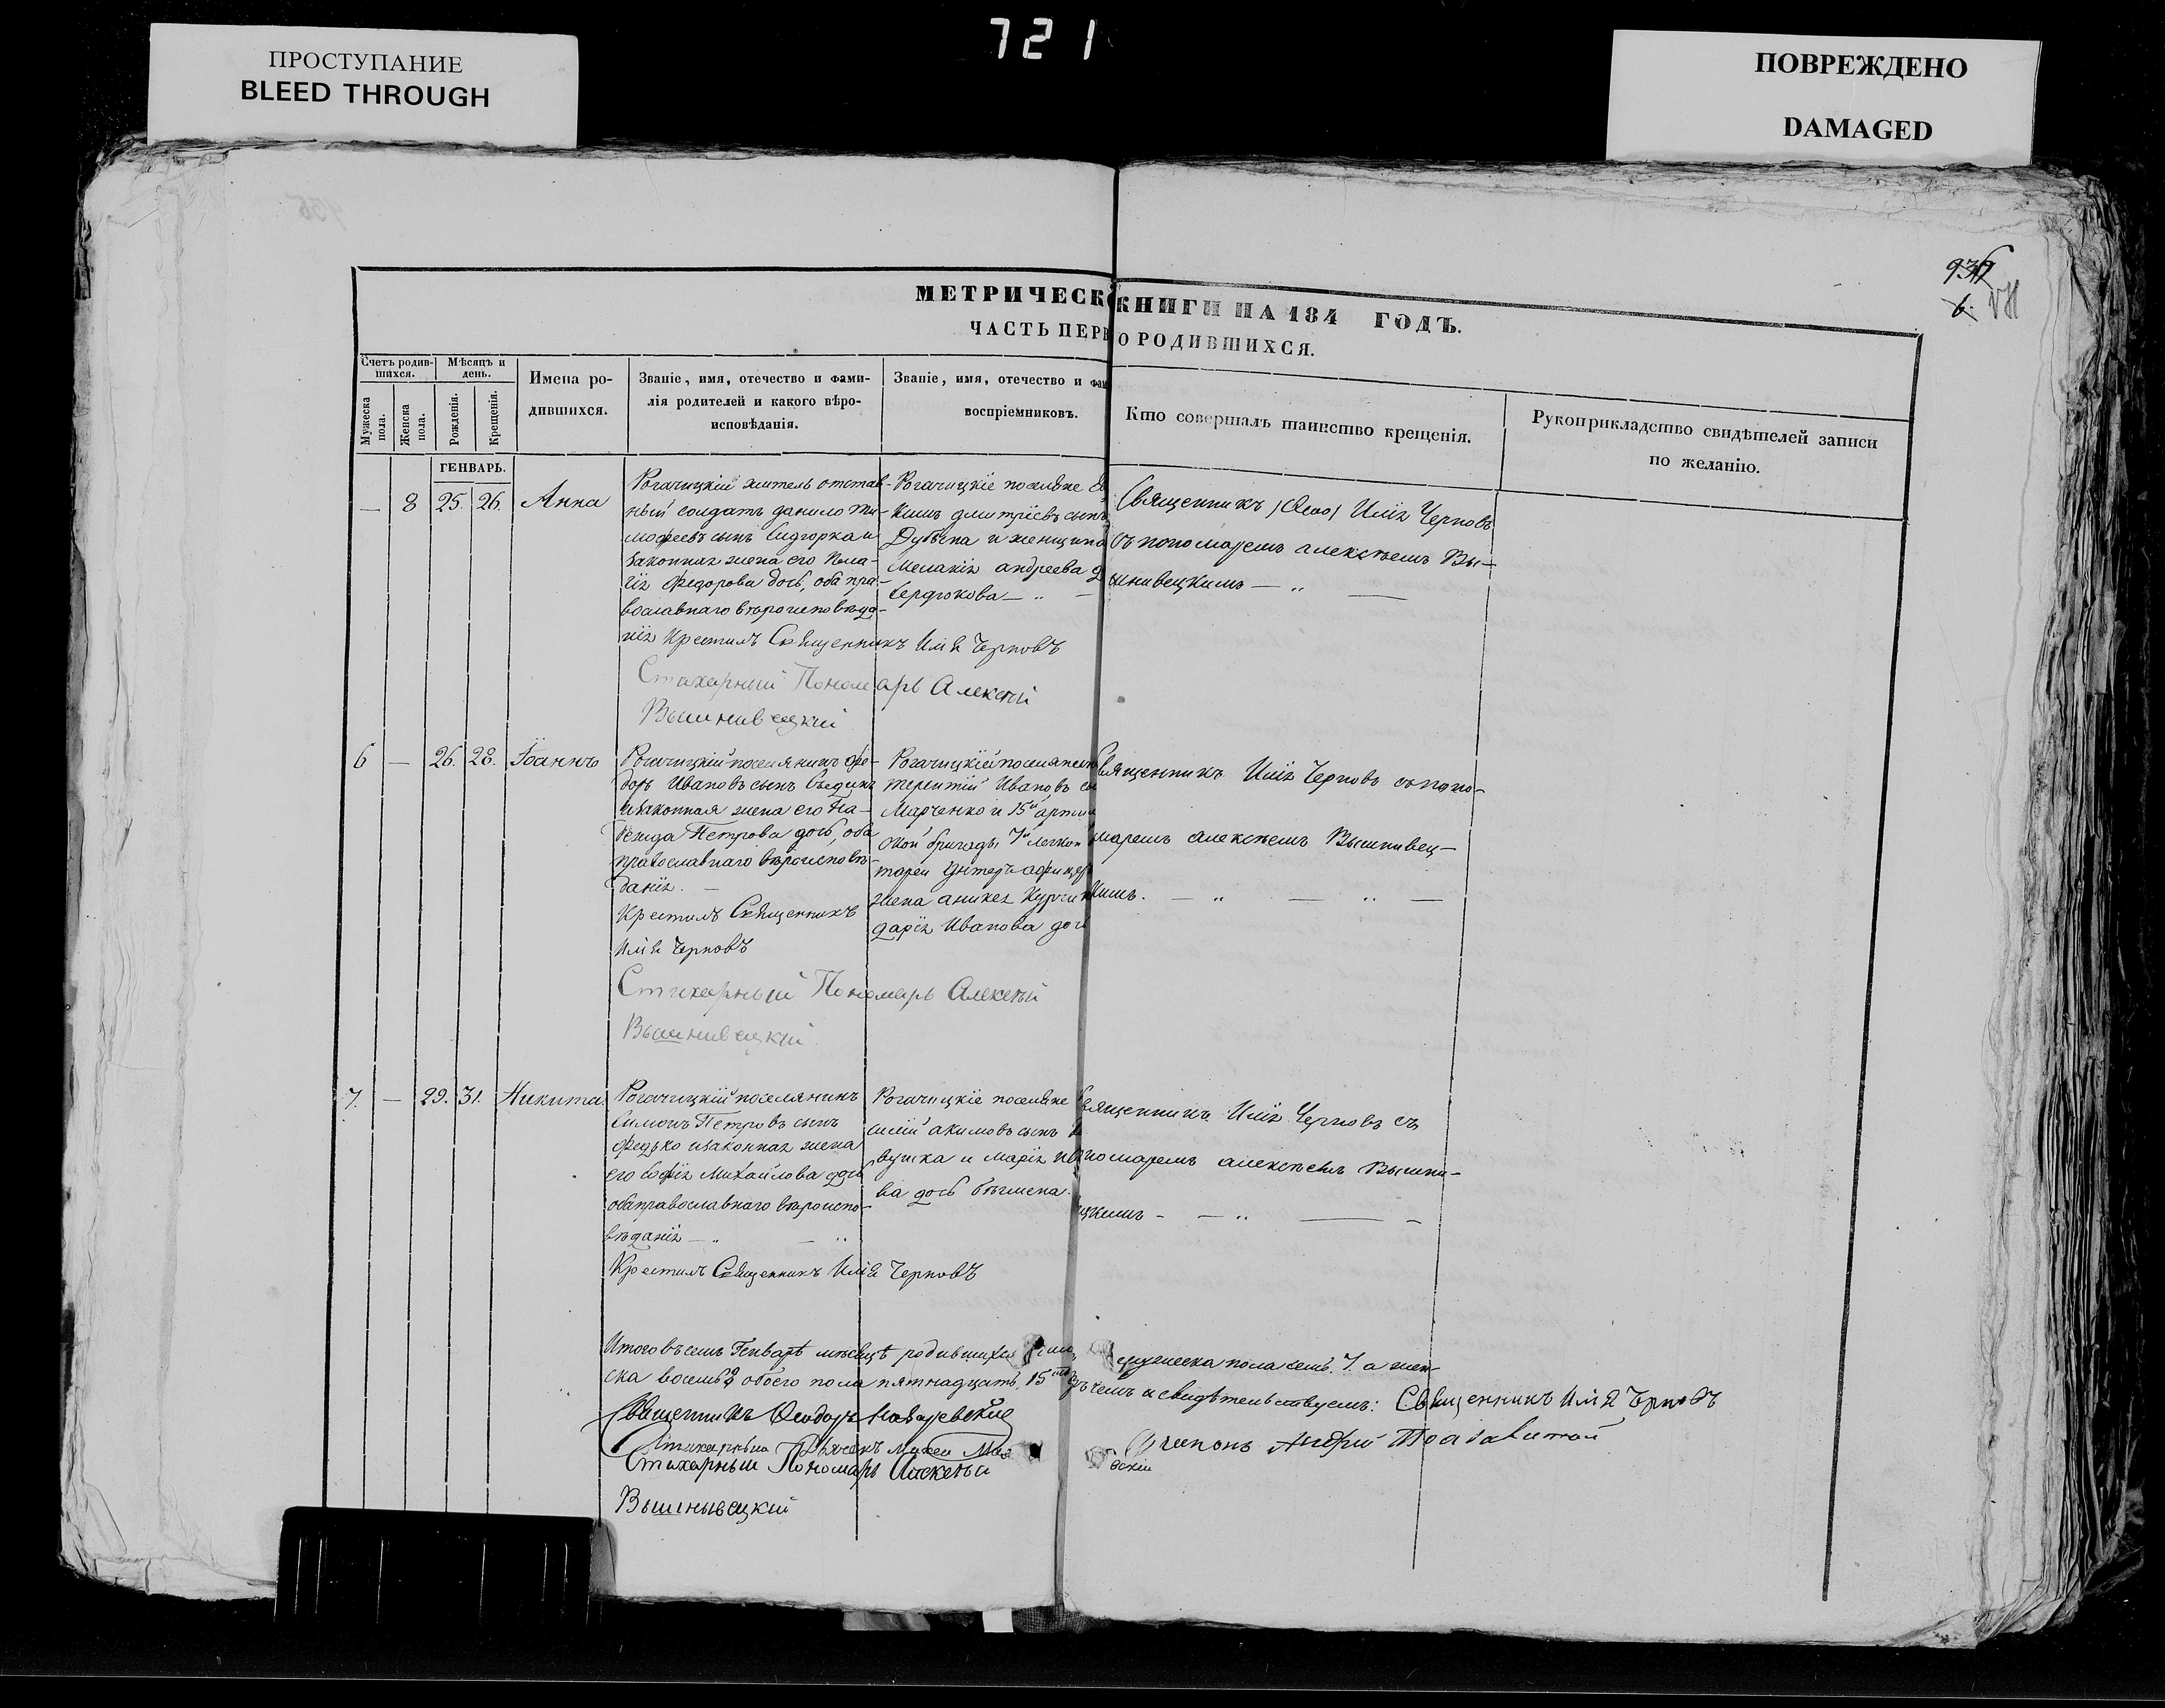 721
ПРОСТУПАНИЕ
BLEED THROUGH
ПОВРЕЖДЕНО
DAMAGED
6.
МЕТРИЧЕСК КНИГИ НА 184 ГОДЪ.
ЧАСТЬ ПЕРВ О РОДИВШИХСЯ.
Счетъ родив-
шихся.
Мужеска
пола.
Женска
пола.
Мѣсяцъ и
день.
Рожденія.
Крещенія.
Имена ро-
дившихся.
Званіе, имя, отечество и фами-
лія родителей и какого вѣро-
исповѣданія.
Званіе, имя, отечество и фам
воспріемниковъ.
Кто совершалъ таинство крещенія.
Рукоприкладство свидѣтелей записи
по желанію.
ГЕНВАРЬ.
— 8 25. 26. Анна
Рогачицкій житель отстав-
ный солдатъ данило ти-
мофеевъ сынъ Сидорка и
законная жена его Пела-
гія федорова дочь, оба пра-
вославнаго вѣроисповѣда-
нія Крестилъ Священникъ Илія Черновъ
Стихарный Пономарь Алексѣй
Вышнивецкій
Рогачицкіе поселяне
дмитріевъ сынъ
и женщина
Меланія андреева
Сердюкова — „ —
Священникъ Илія Черновъ
съ пономаремъ алексѣемъ Вы-
шнивецкимъ — „ —
6 — 26. 28. Іоаннъ
Рогачицкій поселянинъ фео-
доръ Ивановъ сынъ
и законная жена его На-
дежда Петрова дочь, оба
православнаго вѣроисповѣ-
данія. —
Крестилъ Священникъ
Илія Черновъ
Стихарный Пономарь Алексѣй
Вышнивецкій
Рогачицкій поселянинъ
терентій Ивановъ
Марченко и 15й
ской бригады 7й легкой
тареи унтеръ офицер
жена
дарія Иванова доч
вященникъ Илія Черновъ съ поно-
маремъ алексѣемъ Вышнивец-
кимъ. — „ — „ —
7. — 29. 31. Никита
Рогачицкій поселянинъ
Симонъ Петровъ сынъ
федько и законная жена
его Софія Михайлова дочь
оба православнаго вѣроиспо-
вѣданія — „ — „
Крестилъ Священникъ Илія Черновъ
Рогачицкіе поселяне
силій акимовъ сынъ
и Марія
ва дочь
вященникъ Илія Черновъ съ
пономаремъ алексѣемъ Вышни-
цкимъ — — „ — —
Итого въ семъ Генварѣ мѣсяцѣ родившихся мужеска пола семь. 7. а жен-
ска восемь 8 обоего пола пятнадцать, 15 въ чемъ и свидѣтельствуемъ: Священникъ Илія Черновъ
Священникъ Феодоръ
Стихарный Пономарь Алексѣй
Вышнывецкій